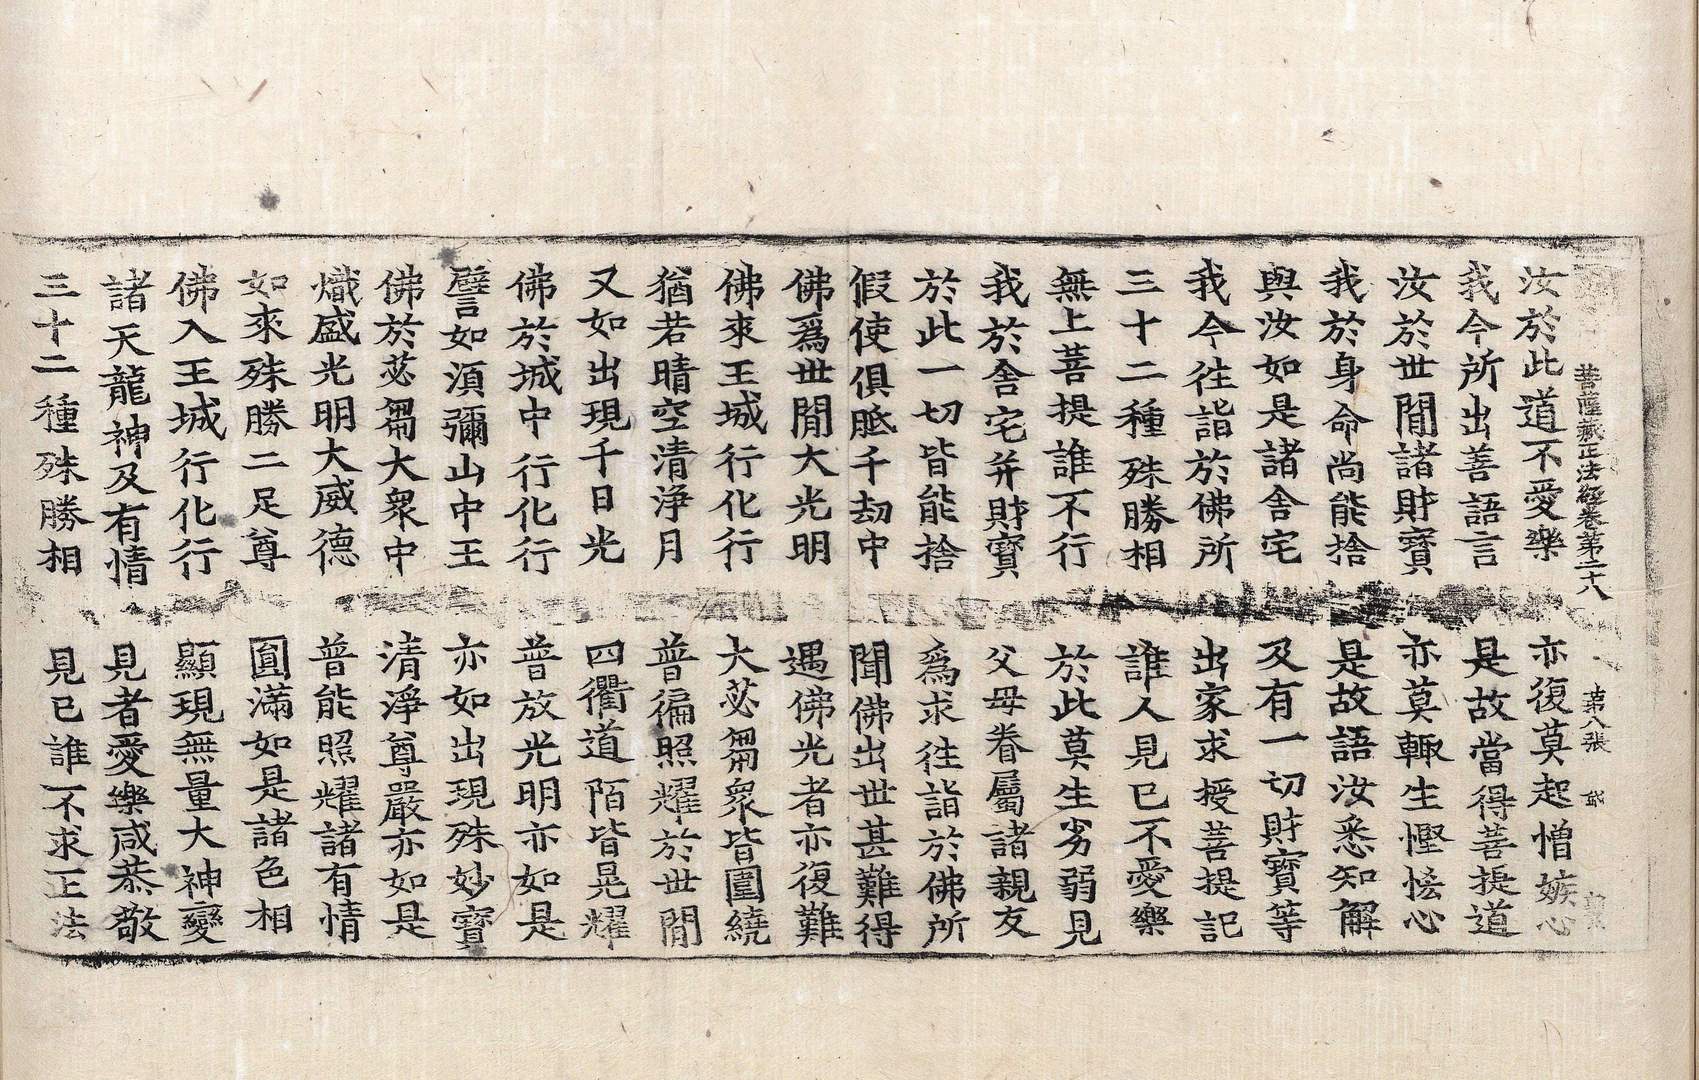 菩薩藏正法經卷第二十八 第八張
汝於此道不愛樂 亦復莫起憎嫉心
我今所出善語言 是故當得菩提道
汝於世閒諸財寶 亦莫輙生慳悋心
我於身命尚能捨 是故語汝悉知解
與汝如是諸舍宅 及有一切財寶等
我今往詣於佛所 出家求授菩提記
三十二種殊勝相 誰人見已不愛樂
無上菩提誰不行 於此莫生劣弱見
我於舍宅并財寶 父母眷屬諸親友
於此一切皆能捨 爲求往詣於佛所
假使俱胝千劫中 聞佛出世甚難得
佛爲世閒大光明 遇佛光者亦復難
佛來王城行化行 大苾芻衆皆圍繞
猶若晴空清淨月 普徧照耀於世閒
又如出現千日光 四衢道陌皆晃耀
佛於城中行化行 普放光明亦如是
譬如湏彌山中王 亦如出現殊妙寶
佛於苾芻大衆中 清淨尊嚴亦如是
熾盛光明大威德 普能照耀諸有情
如來殊勝二足尊 圓滿如是諸色相
佛入王城行化行 顯現無量大神變
諸天龍神及有情 見者愛樂咸恭敬
三十二種殊勝相 見已誰不求正法